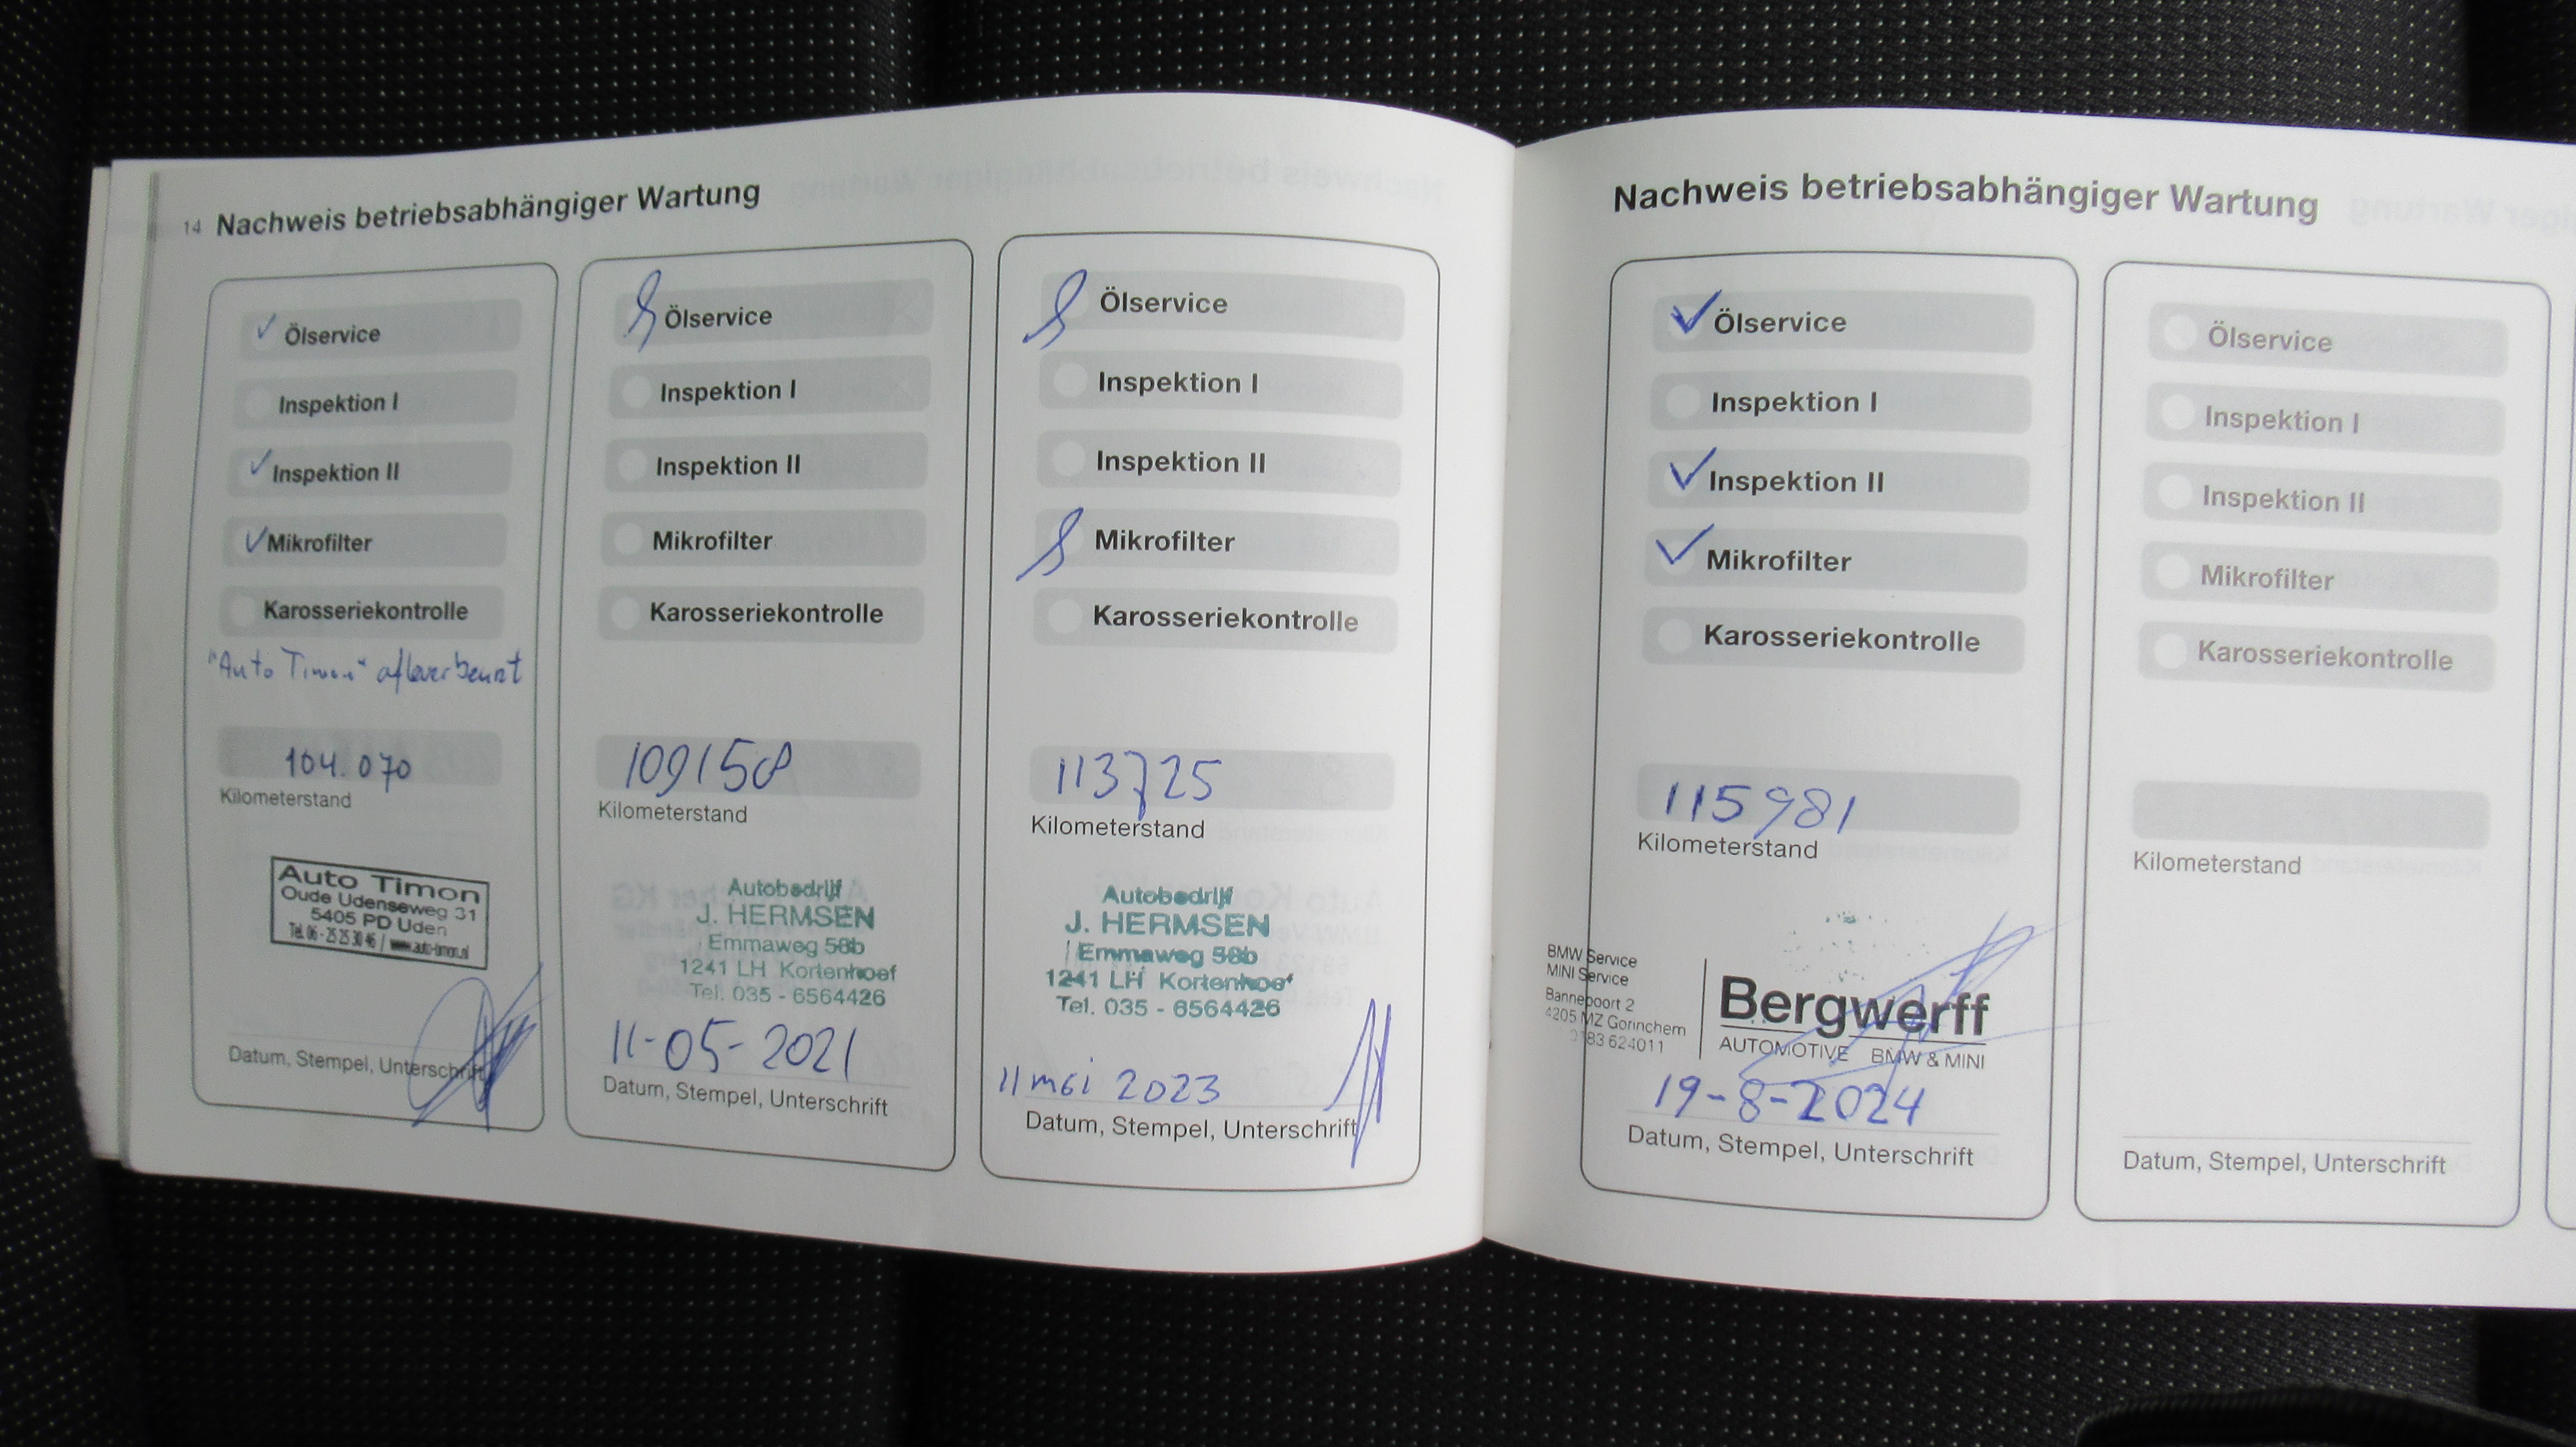 14 Nachweis betriebsabhängiger Wartung
✓ Ölservice
Inspektion I
✓ Inspektion II
✓ Mikrofilter
Karosseriekontrolle
"Auto Timon" afleverbeurt
104.070
Kilometerstand
Auto Timon
Oude Udenseweg 31
5405 PD Uden
Tel. 06 - 25 25 30 46 / www.auto-timon.nl
Datum, Stempel, Unterschrift
Ölservice
Inspektion I
Inspektion II
Mikrofilter
Karosseriekontrolle
109158
Kilometerstand
Autobedrijf
J. HERMSEN
Emmaweg 58b
1241 LH Kortenhoef
Tel. 035 - 6564426
11-05-2021
Datum, Stempel, Unterschrift
Ölservice
Inspektion I
Inspektion II
Mikrofilter
Karosseriekontrolle
113725
Kilometerstand
Autobedrijf
J. HERMSEN
Emmaweg 58b
1241 LH Kortenhoef
Tel. 035 - 6564426
11 mei 2023
Datum, Stempel, Unterschrift
Nachweis betriebsabhängiger Wartung
✓ Ölservice
Inspektion I
✓ Inspektion II
✓ Mikrofilter
Karosseriekontrolle
115981
Kilometerstand
BMW Service
MINI Service
Bannepoort 2
4205 MZ Gorinchem
0183 624011
Bergwerff
AUTOMOTIVE BMW & MINI
19-8-2024
Datum, Stempel, Unterschrift
Ölservice
Inspektion I
Inspektion II
Mikrofilter
Karosseriekontrolle
Kilometerstand
Datum, Stempel, Unterschrift